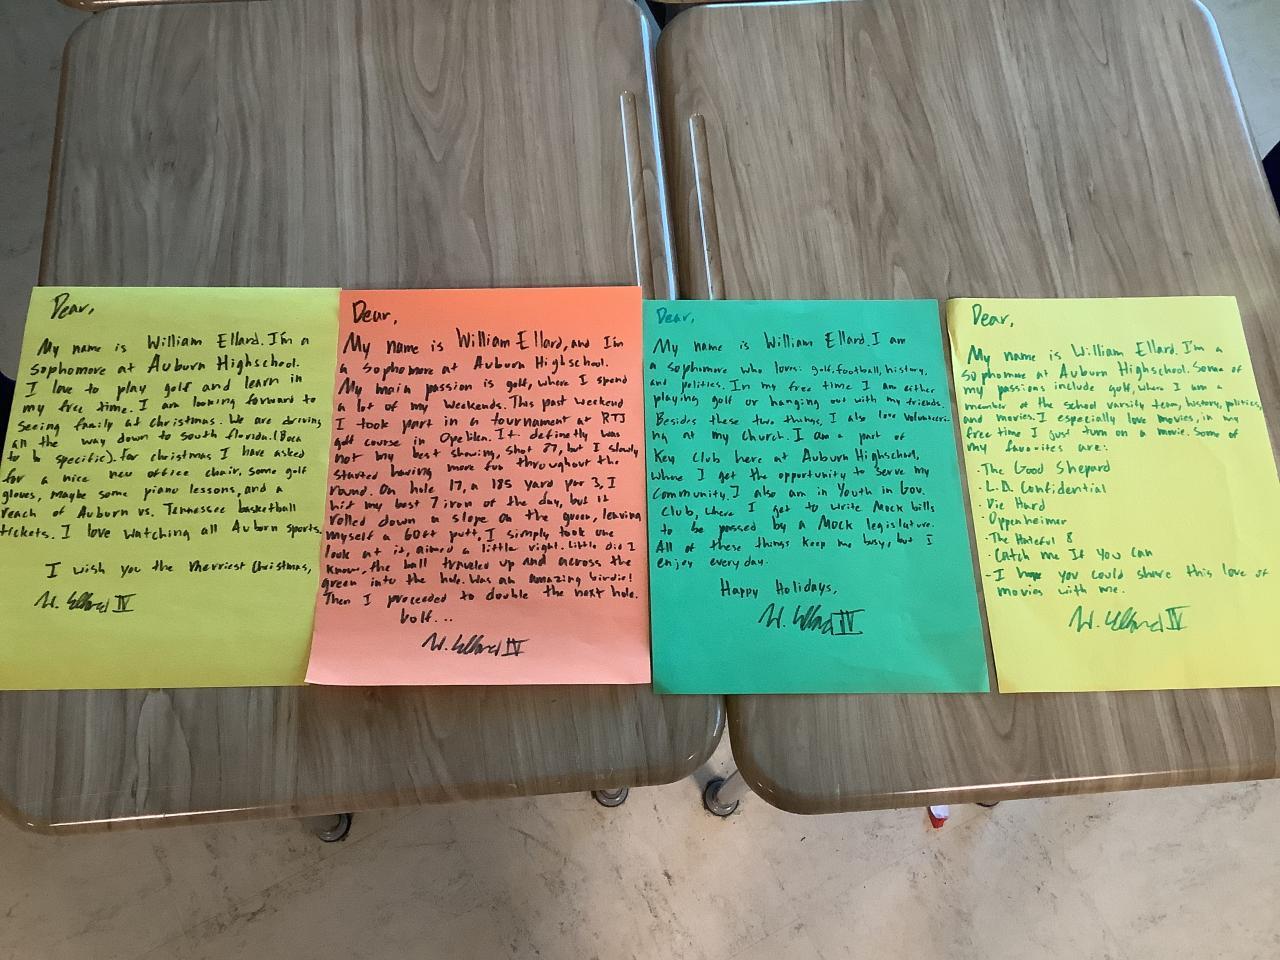 Dear,
My name is William Ellard. I'm a
Sophomore at Auburn Highschool.
I love to play golf and learn in
my free time. I am looking forward to
seeing family at Christmas. We are driving
all the way down to south florida. (Boca
to be specific). for christmas I have asked
for a nice new office chair, some golf
gloves, maybe some piano lessons, and a
reach of Auburn vs. Tennessee basketball
tickets. I love watching all Auburn sports.
I wish you the Merriest Christmas,
W. Ellard IV
Dear,
My name is William Ellard, and I'm
a Sophomore at Auburn Highschool.
My main passion is golf, where I spend
a lot of my weekends. This past weekend
I took part in a tournament at RTJ
golf course in Opelika. It definetly was
not my best showing, shot 87, but I slowly
started having more fun throughout the
round. On hole 17, a 185 yard par 3, I
hit my best 7 iron of the day, but it
rolled down a slope on the green, leaving
myself a 60ft putt, I simply took one
look at it, aimed a little right. Little did I
know, the ball traveled up and across the
green into the hole. Was an amazing birdie!
Then I proceeded to double the next hole.
Golf...
W. Ellard IV
Dear,
My name is William Ellard. I am
a sophomore who loves: golf, football, history,
and politics. In my free time I am either
playing golf or hanging out with my friends.
Besides these two things, I also love volunteeri-
ng at my church. I am a part of
Key Club here at Auburn Highschool,
Where I get the opportunity to serve my
Community. I also am in Youth in Gov.
Club, where I get to write Mock bills
to be passed by a Mock legislature.
All of these things keep me busy, but I
enjoy every day.
Happy Holidays,
W. Ellard IV
Dear,
My name is William Ellard. I'm a
Sophomore at Auburn Highschool. Some of
my passions include golf, where I am a
member of the school varsity team, history, politics,
and movies. I especially love movies, in my
free time I just turn on a movie. Some of
my favorites are:
- The Good Shepard
- L.A. Confidential
- Die Hard
- Oppenheimer
- The Hateful 8
- Catch me If you can
- I hope you could share this love of
movies with me.
W. Ellard IV